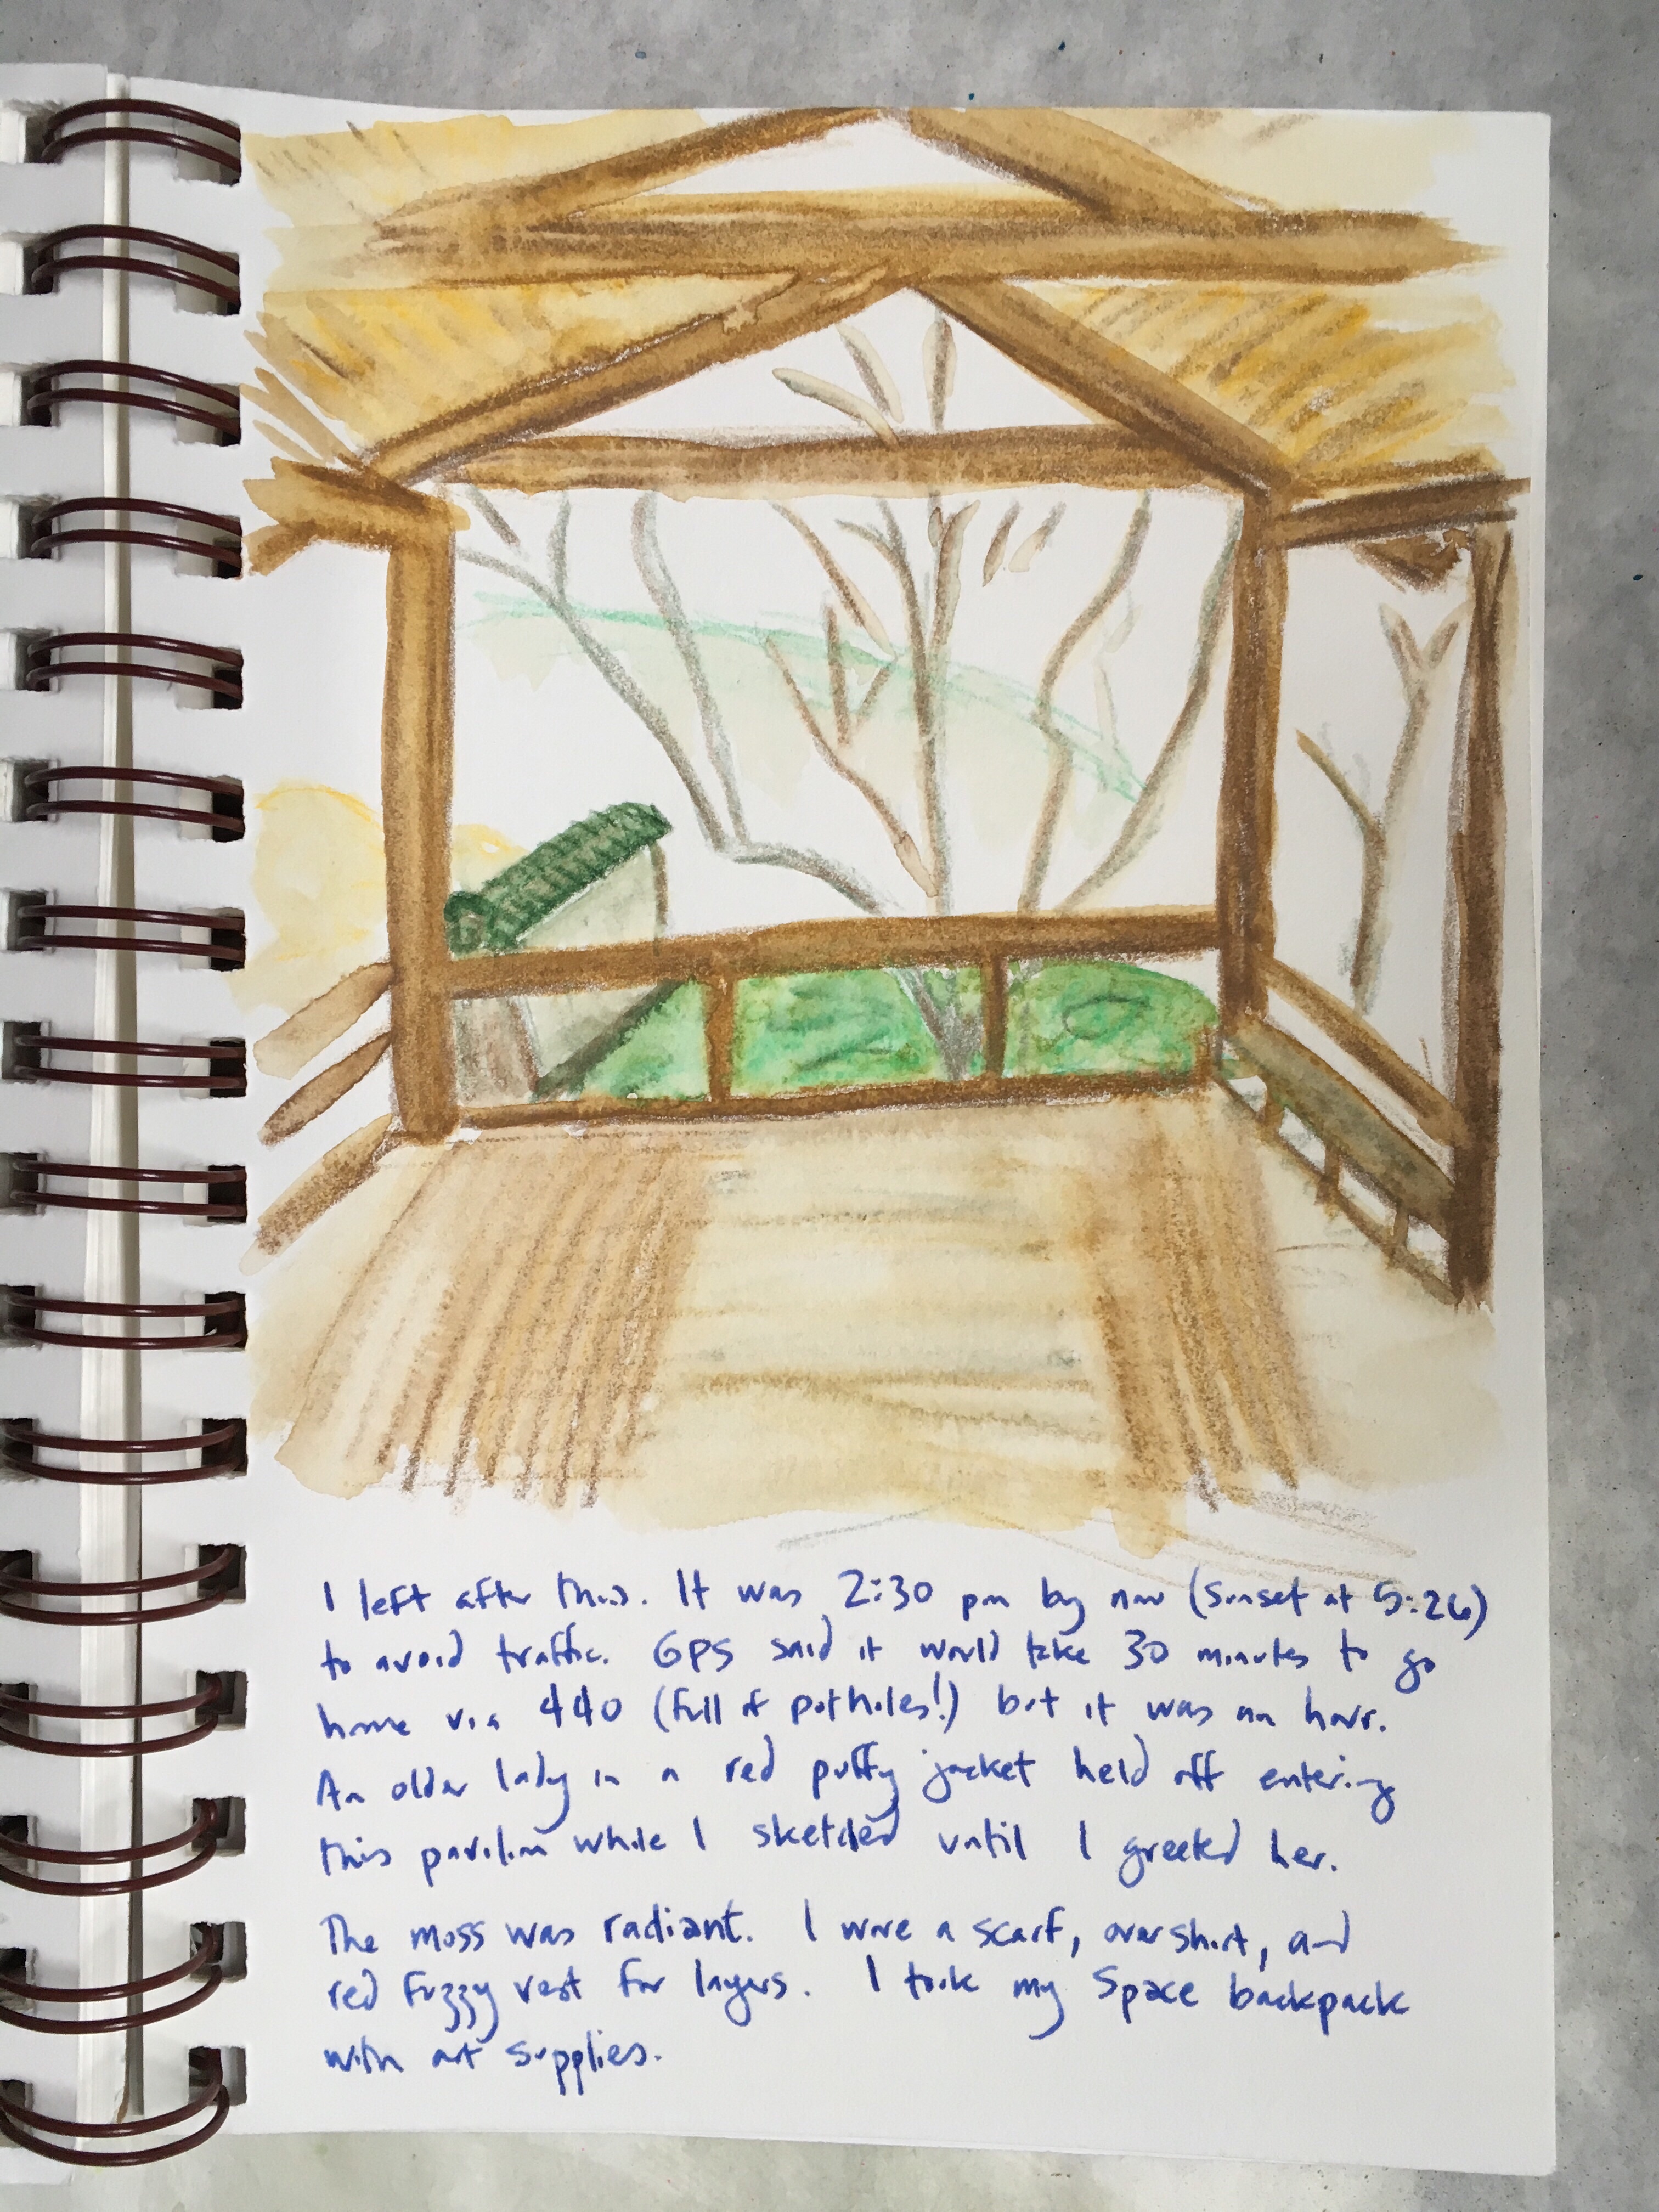 I left after this. It was 2:30 pm by now (sunset at 5:26)
to avoid traffic. GPS said it would take 30 minutes to go
home via 440 (full of potholes!) but it was an hour.
An older lady in a red puffy jacket held off entering
this pavilion while I sketched until I greeted her.
The moss was radiant. I wore a scarf, overshirt, and
red fuzzy vest for layers. I took my Space backpack
with art supplies.